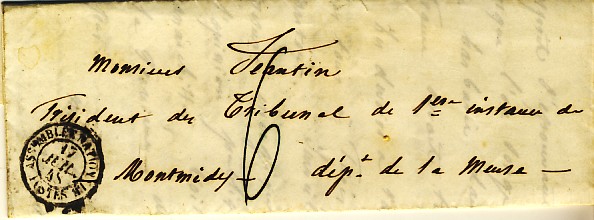 Monsieur Jeantin
Président du Tribunal de 1ere instance de
Montmédy — dépt de la Meuse —
6
ASSEMBLÉE NATIONALE
17
JUIL
POSTES